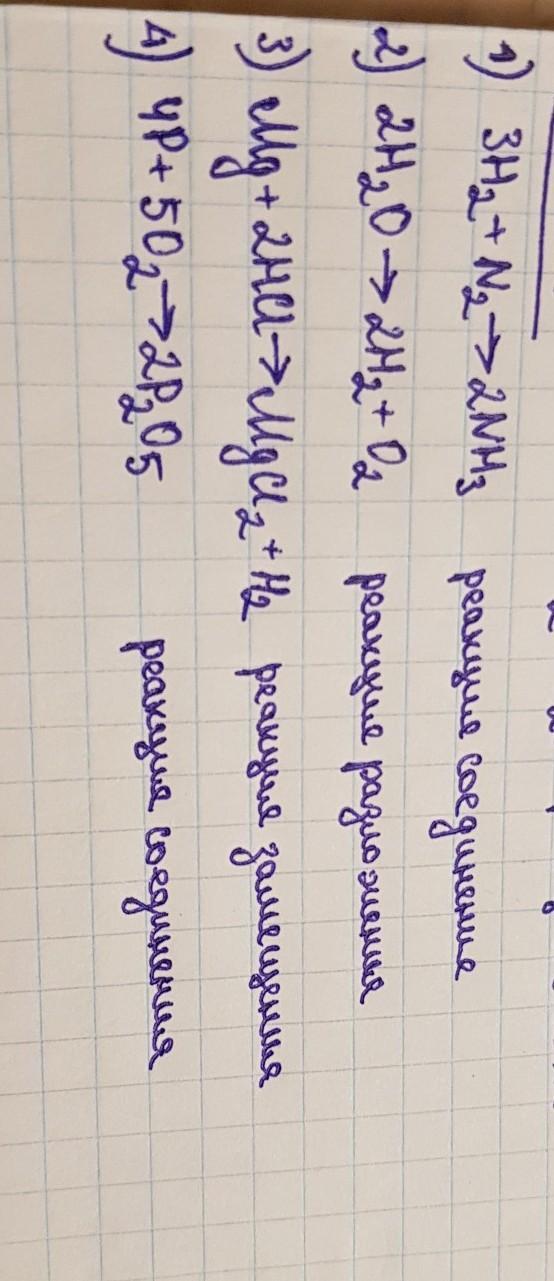 1) 3H₂ + N₂ → 2NH₃ реакция соединения
2) 2H₂O → 2H₂ + O₂ реакция разложения
3) Mg + 2HCl → MgCl₂ + H₂ реакция замещения
4) 4P + 5O₂ → 2P₂O₅ реакция соединения